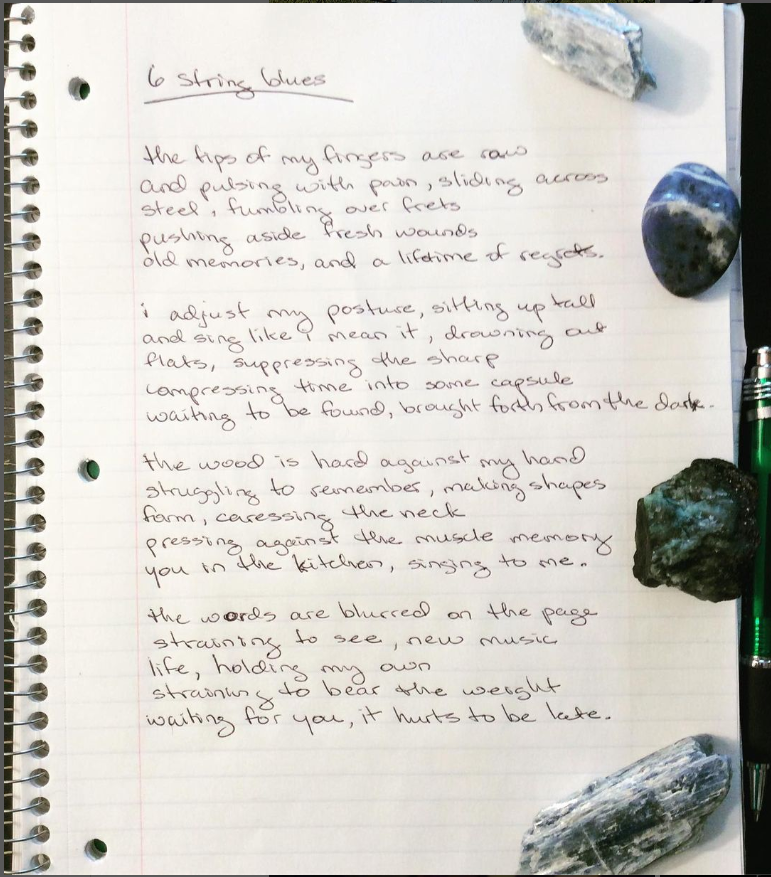 6 string blues
the tips of my fingers are raw
and pulsing with pain, sliding across
steel, fumbling over frets
pushing aside fresh wounds
old memories, and a lifetime of regrets.
i adjust my posture, sitting up tall
and sing like i mean it, drowning out
flats, suppressing the sharp
compressing time into some capsule
waiting to be found, brought forth from the dark.
the wood is hard against my hand
struggling to remember, making shapes
form, caressing the neck
pressing against the muscle memory
you in the kitchen, singing to me.
the words are blurred on the page
straining to see, new music
life, holding my own
straining to bear the weight
waiting for you, it hurts to be late.